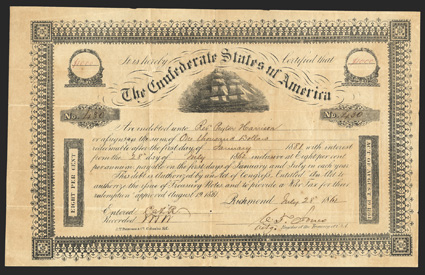 It is hereby Certified that
The Confederate States of America
No. 430
No. 430
Are indebted unto Rev. Peyton Harrison
or assigns in the sum of One thousand Dollars
redeemable after the first day of January 1881 with interest
from the 28 day of July 1862 inclusive at Eight per cent
per annum payable on the first days of January and July in each year
This debt is authorized by an Act of Congress Entitled An Act to
authorize the issue of Treasury Notes and to provide a War Tax for their
redemption approved August 19 1861
EIGHT PER CENT
Richmond July 28 1862
Entered
Recorded
Register of the Treasury